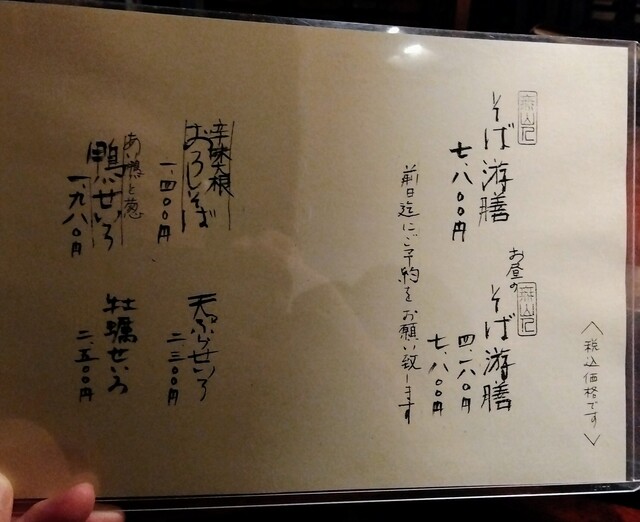 〈税込価格です〉
そば游膳
七、八〇〇円
お昼の
そば游膳
四、一八〇円
七、八〇〇円
前日迄にご予約をお願い致します
辛味大根
おろしそば
一、四〇〇円
天ぷらせいろ
二、三〇〇円
あい鴨と葱
鴨せいろ
一、九八〇円
牡蠣せいろ
二、五〇〇円